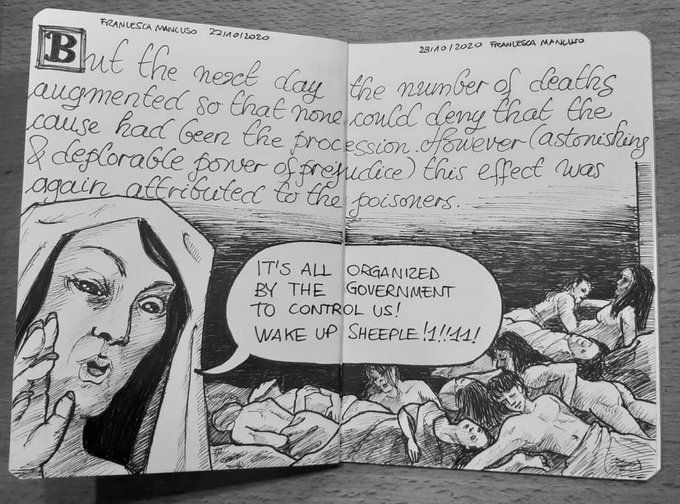 FRANCESCA MANCUSO 22/10/2020
23/10/2020 FRANCESCA MANCUSO
But the next day the number of deaths
augmented so that none could deny that the
cause had been the procession. However (astonishing
& deplorable power of prejudice) this effect was
again attributed to the poisoners.
IT'S ALL ORGANIZED
BY THE GOVERNMENT
TO CONTROL US!
WAKE UP SHEEPLE!1!!11!